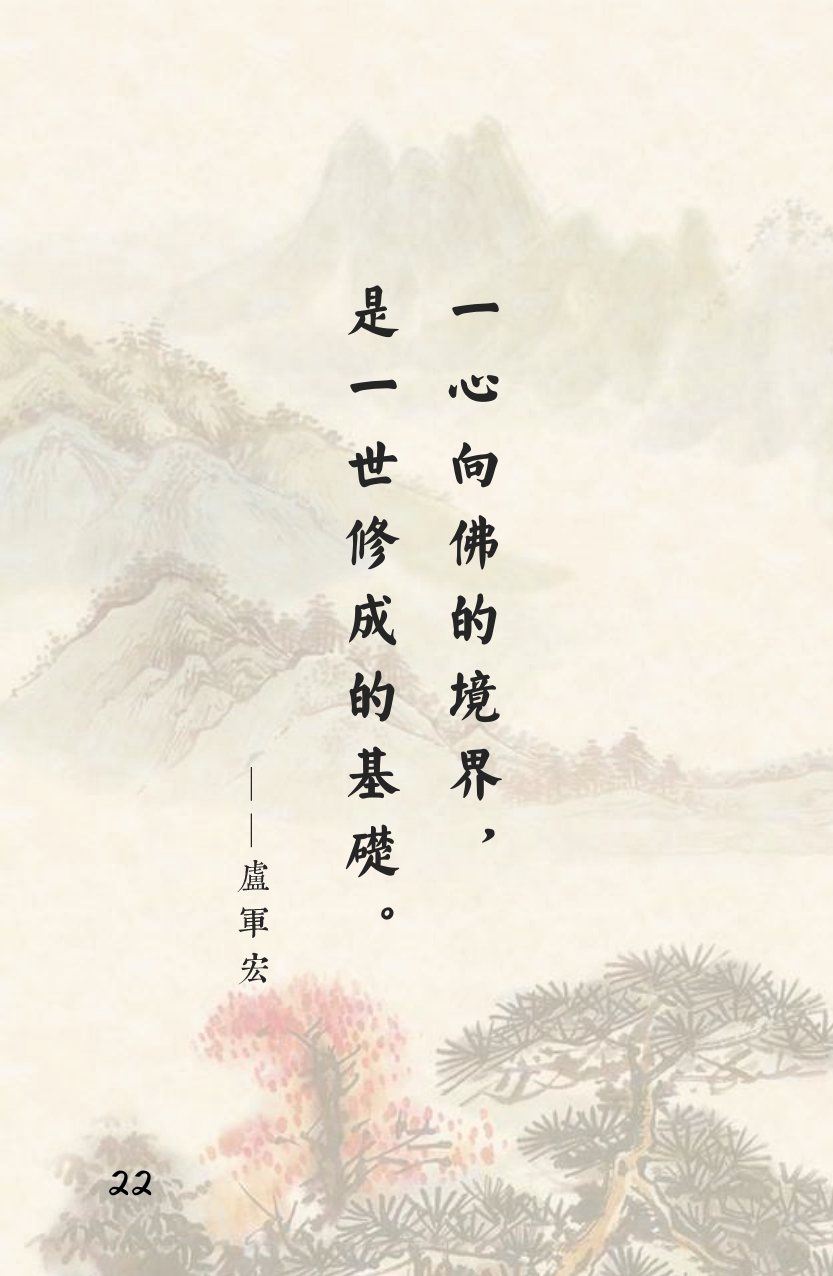 一心向佛的境界，
是一世修成的基礎。
——盧軍宏
22